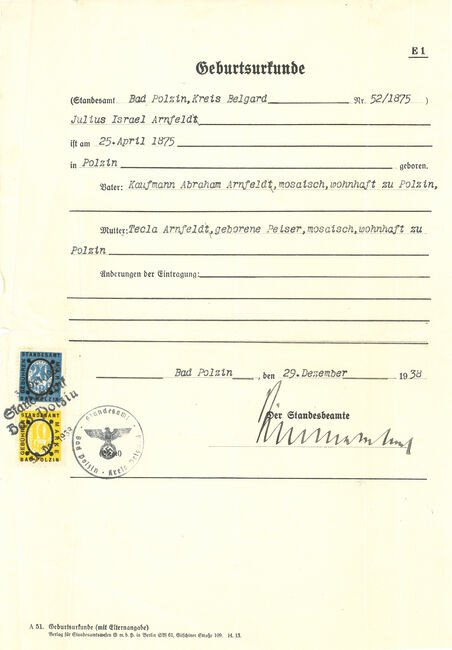 E 1
Geburtsurkunde
(Standesamt Bad Polzin, Kreis Belgard Nr. 52/1875 )
Julius Israel Arnfeldt
ist am 25. April 1875
in Polzin geboren.
Vater: Kaufmann Abraham Arnfeldt, mosaisch, wohnhaft zu Polzin,
Mutter: Tecla Arnfeldt, geborene Peiser, mosaisch, wohnhaft zu
Polzin
Änderungen der Eintragung:
Bad Polzin , den 29. Dezember 1938
Der Standesbeamte
STANDESAMT
GEBÜHREN
MARKE
20
BAD POLZIN
Standesamt
Bad Polzin
STANDESAMT
GEBÜHREN
MARKE
10
BAD POLZIN
Standesamt
Bad Polzin · Kreis
A 51. Geburtsurkunde (mit Elternangabe)
Verlag für Standesamtswesen G. m. b. H. in Berlin SW 61, Gitschiner Straße 109.